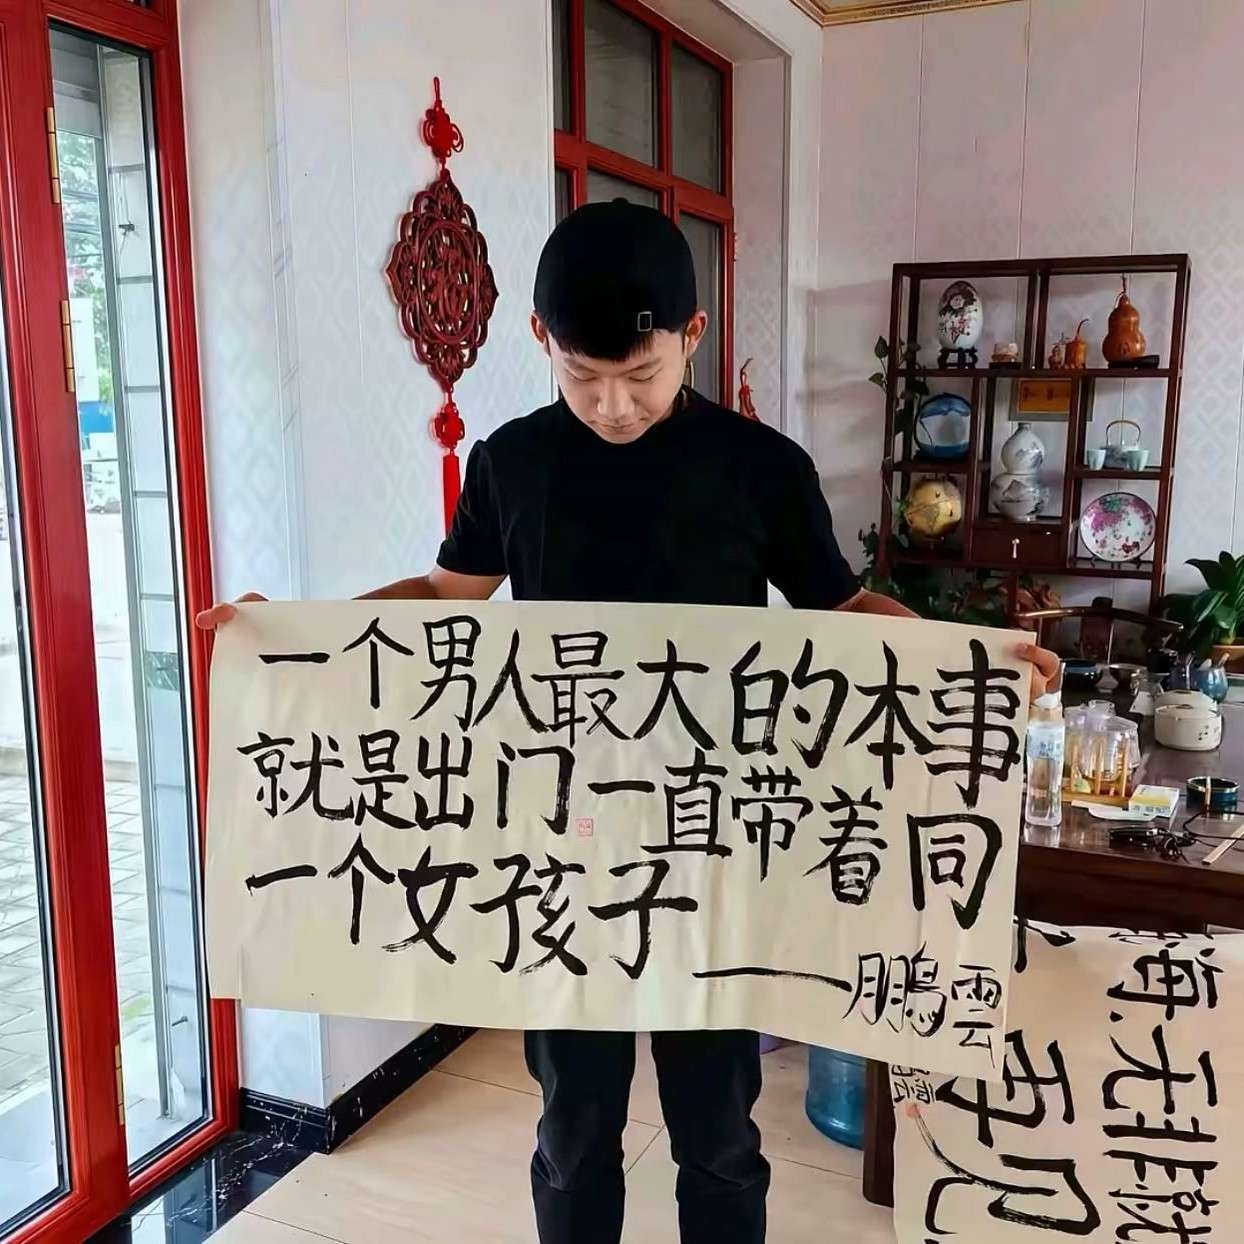 一个男人最大的本事
就是出门一直带着同
一个女孩子
——鹏雲
海.无非就
再见